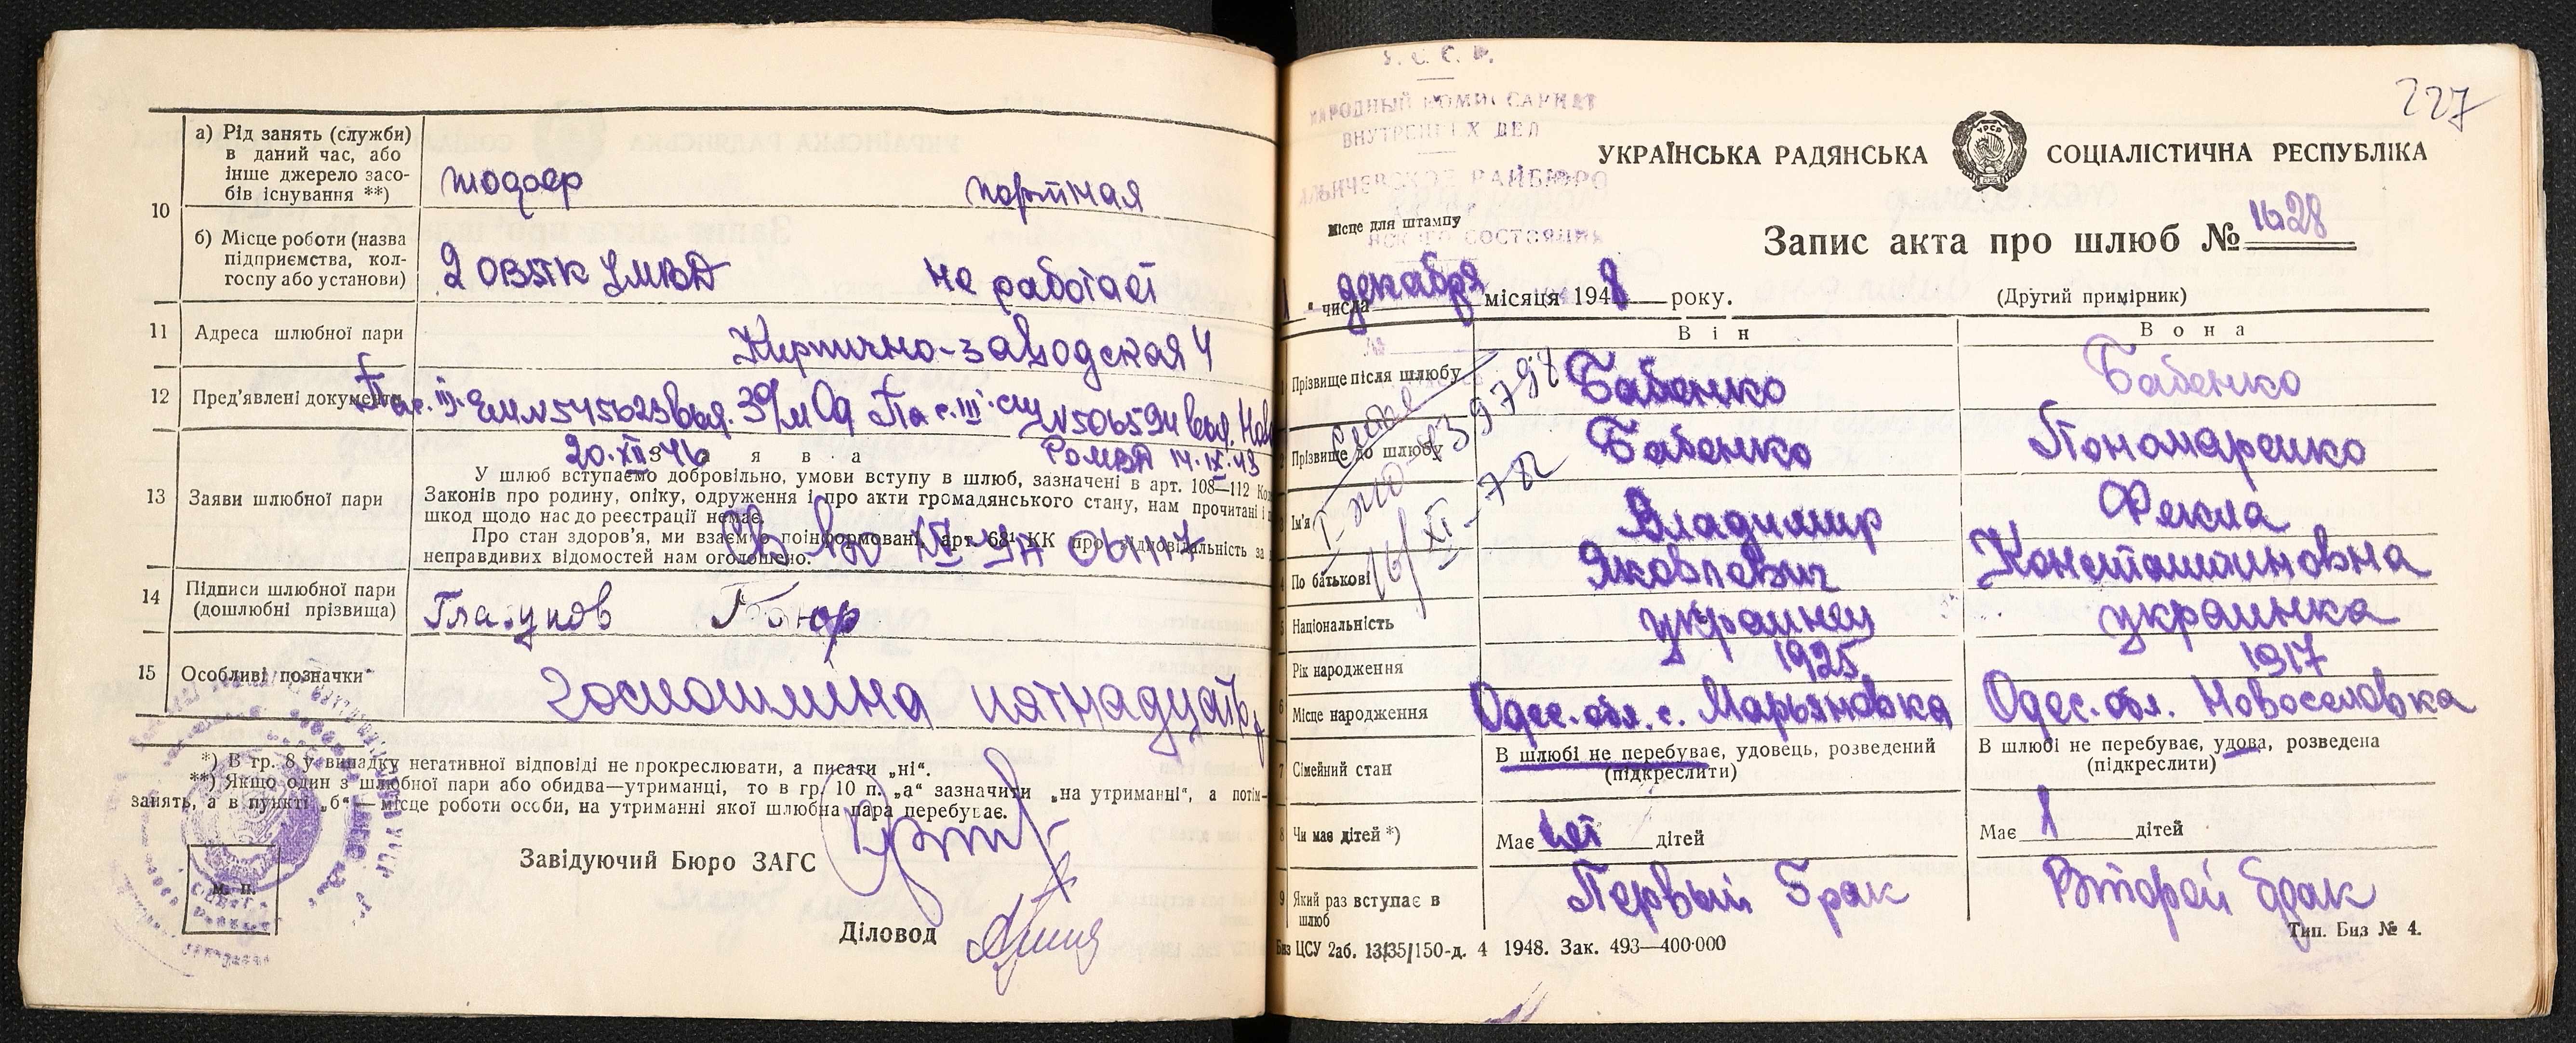 10
а) Рід занять (служби)
в даний час, або
інше джерело засо-
бів існування **)
шофер
портная
б) Місце роботи (назва
підприємства, кол-
госпу або установи)
2 УМВД
не работает
11
Адреса шлюбної пари
Кирпично-заводская 4
12
Пред'явлені документи
545623 выд. 506594 выд.
20.XII 46
14.IX.43
13
Заяви шлюбної пари
З а я в а
У шлюб вступаємо добровільно, умови вступу в шлюб, зазначені в арт. 108—112
Законів про родину, опіку, одруження і про акти громадянського стану, нам прочитані і
шкод щодо нас до реєстрації немає.
Про стан здоров'я, ми взаємно поінформовані, арт. 68¹ КК про відповідальність за
неправдивих відомостей нам оголошено.
14
Підписи шлюбної пари
(дошлюбні прізвища)
Глазунов
15
Особливі позначки
госпошлина пятнадцать
*) В гр. 8 у випадку негативної відповіді не прокреслювати, а писати „ні“.
**) Якщо один з шлюбної пари або обидва—утриманці, то в гр. 10 п. „а“ зазначити „на утриманні“, а потім
занять, а в пункті „б“—місце роботи особи, на утриманні якої шлюбна пара перебуває.
Завідуючий Бюро ЗАГС
Діловод
м. п.
У. С. С. Р.
НАРОДНЫЙ КОМИССАРИАТ
ВНУТРЕННИХ ДЕЛ
РАЙБЮРО
СОСТОЯНИЯ
Місце для штампу
227
УКРАЇНСЬКА РАДЯНСЬКА СОЦІАЛІСТИЧНА РЕСПУБЛІКА
Запис акта про шлюб № 1628
„ числа декабря місяця 1948 року.
(Другий примірник)
Він
Вона
1 Прізвище після шлюбу
Бабенко
Бабенко
2 Прізвище до шлюбу
Бабенко
Пономаренко
3 Ім'я
Владимир
Фекла
4 По батькові
Яковлевич
Константиновна
5 Національність
украинец
украинка
Рік народження
1925
1917
6 Місце народження
Одес. обл. с. Марьяновка
Одес. обл. Новоселовка
7 Сімейний стан
В шлюбі не перебуває, удовець, розведений
(підкреслити)
В шлюбі не перебуває, удова, розведена
(підкреслити)
8 Чи має дітей *)
Має нет дітей
Має 1 дітей
9 Який раз вступає в
шлюб
Первый брак
Второй брак
Биз ЦСУ 2аб. 13/35/150-д. 4 1948. Зак. 493—400·000
Тип. Биз № 4.